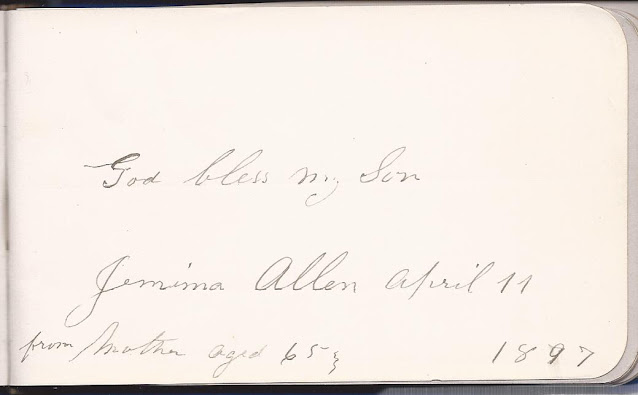 God bless my Son
Jemima Allen April 11
from Mother aged 65
1897